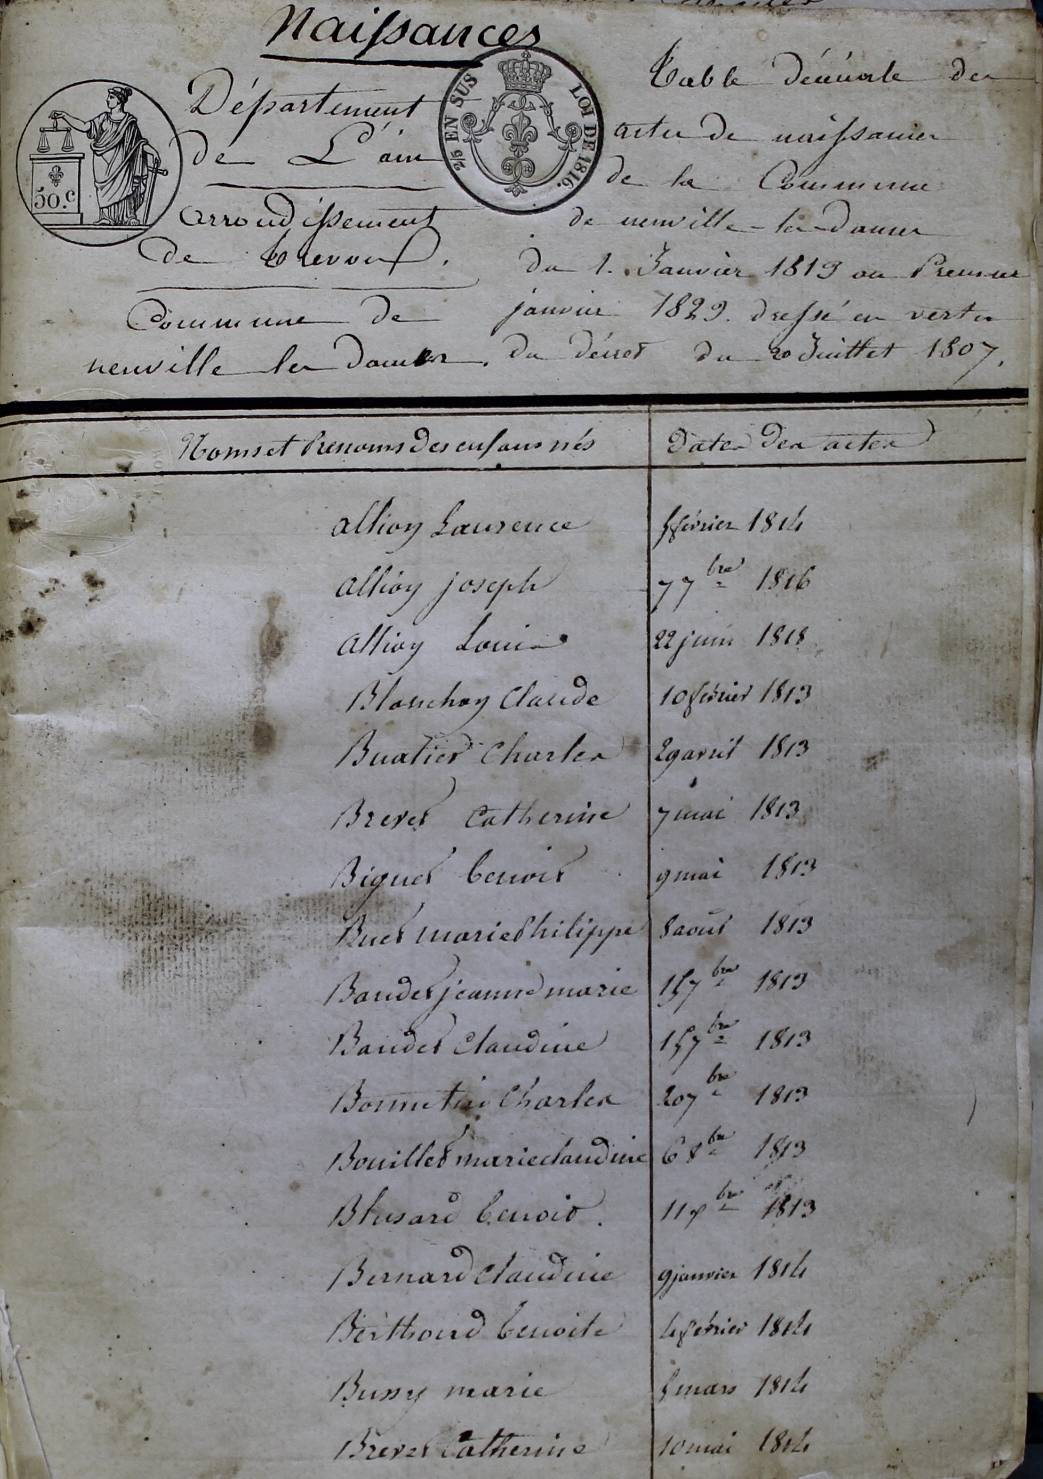 Naissances
Département
de L'ain
arrondissement
de trevoux.
Commune de
neuville les dames.
50.c
25 EN SUS LOI DE 1816.
Table décénale des
actes de naissances
de la Commune
de neuville-les-dames
du 1. Janvier 1813 au Premier
janvier 1823. dressé en vertu
du décret du 20 Juillet 1807.
Noms et Prenoms des enfans nés | Dates des actes
allioy Laurence | 5 février 1814
allioy joseph | 7 7bre 1816
allioy Louis | 22 juin 1818
Blanchoy Claude | 10 février 1813
Buatier Charles | 29 avril 1813
Brevet Catherine | 7 mai 1813
Biguet benoit | 9 mai 1813
Buet marie Philippe | 8 aout 1813
Baudet jeanne marie | 15 7bre 1813
Baudet Claudine | 15 7bre 1813
Bonnetin Charles | 20 7bre 1813
Bouillet marie claudine | 6 8bre 1813
Blusard benoit. | 11 xbre 1813
Bernard claudine | 9 janvier 1814
Berthoud benoite | 4 février 1814
Bussy marie | 5 mars 1814
Brevet Catherine | 10 mai 1814